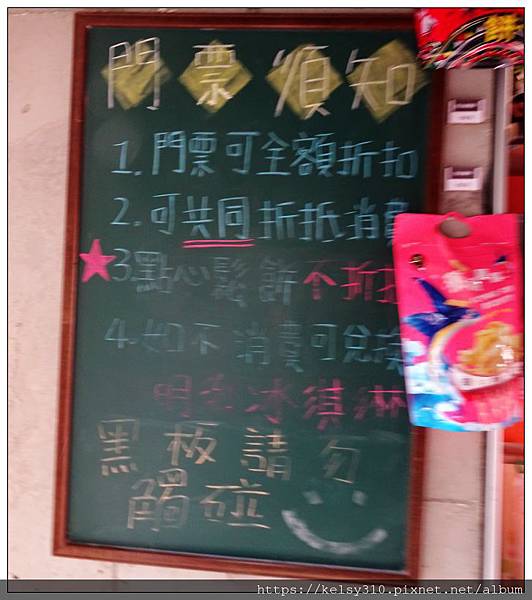 門票須知
1. 門票可全額折扣
2. 可共同折抵消費
3 點心鬆餅不折扣
4. 如不消費可兌換
冰淇淋
黑板請勿
觸碰
餅
https://kelsy310.pixnet.net/album